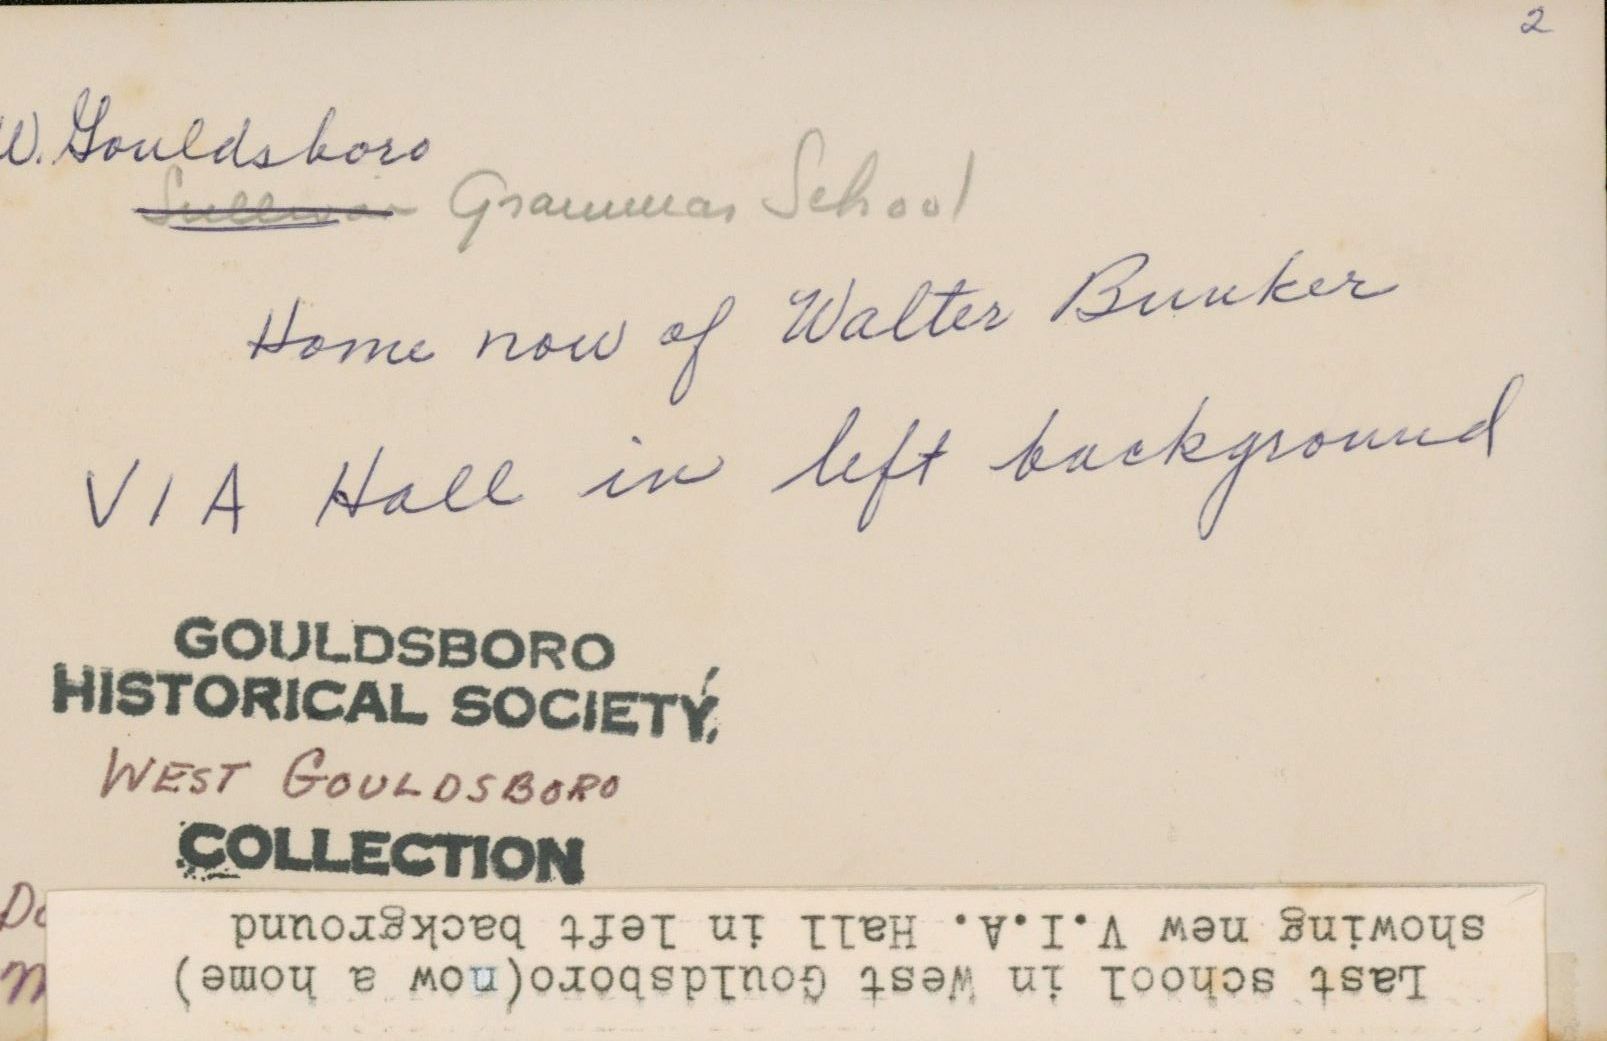 2
W. Gouldsboro
Sullivan Grammar School
Home now of Walter Bunker
VIA Hall in left background
GOULDSBORO
HISTORICAL SOCIETY,
WEST GOULDSBORO
COLLECTION
Last school in West Gouldsboro(now a home)
showing new V.I.A. Hall in left background